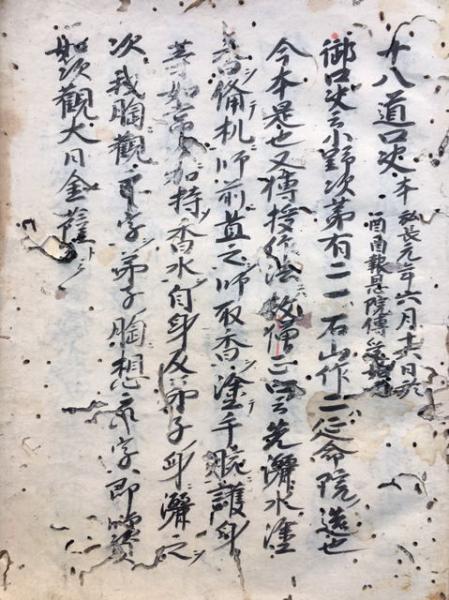 十八道口决 本 弘長元年六月十六日於
酉酉報恩院傳受
御口决云小野次第有二一石山作二延命院造也
今本是也又傳授作法教僧正云先灑水塗
香備机師前置之師取香塗手腕護身
等如常次加持香水自身及弟子身灑之
次我胸觀字弟子胸想字即
如次觀大日金薩